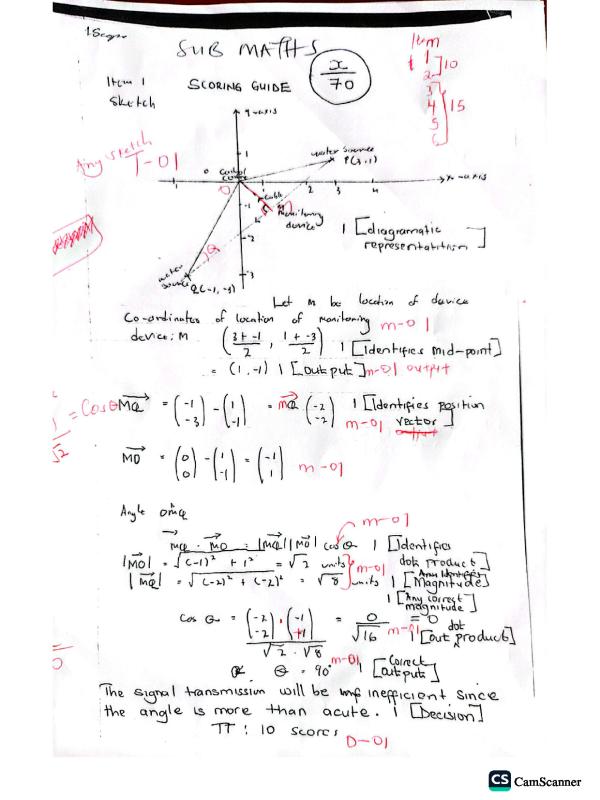 SUB MATHS
x/70
Item 1
SCORING GUIDE
Sketch
Item
1
2 ] 10
3
4
5
6 ] 15
Any sketch
T-01
y-axis
water source
P(3,1)
control centre
x-axis
cable
monitoring device
water source
Q(-1,-3)
1 [diagramatic representatition]
Let M be location of device
Co-ordinates of location of monitoring m-01
device; M (3+-1/2, 1+-3/2) 1 [Identifies mid-point]
= (1,-1) 1 [output] m-01 output
= Cosθ
MQ = (-1 -3) - (1 -1) = MQ (-2 -2) 1 [Identifies position vector]
m-01
MO = (0 0) - (1 -1) = (-1 1) m-01
Angle OMQ
m-01
MQ · MO = |MQ||MO| cosθ 1 [Identifies dot product]
|MO| = √(-1)² + 1² = √2 units m-01 1 [Any Identifies Magnitude]
|MQ| = √(-2)² + (-2)² = √8 units 1 [Any correct magnitude]
Cos θ = (-2 -2) · (-1 +1) / √2 · √8 = 0/√16 = 0 m-01 1 [dot out product]
θ = 90° m-01 1 [correct output]
The signal transmission will be inefficient since
the angle is more than acute. 1 [Decision]
TT: 10 scores D-01
CS CamScanner